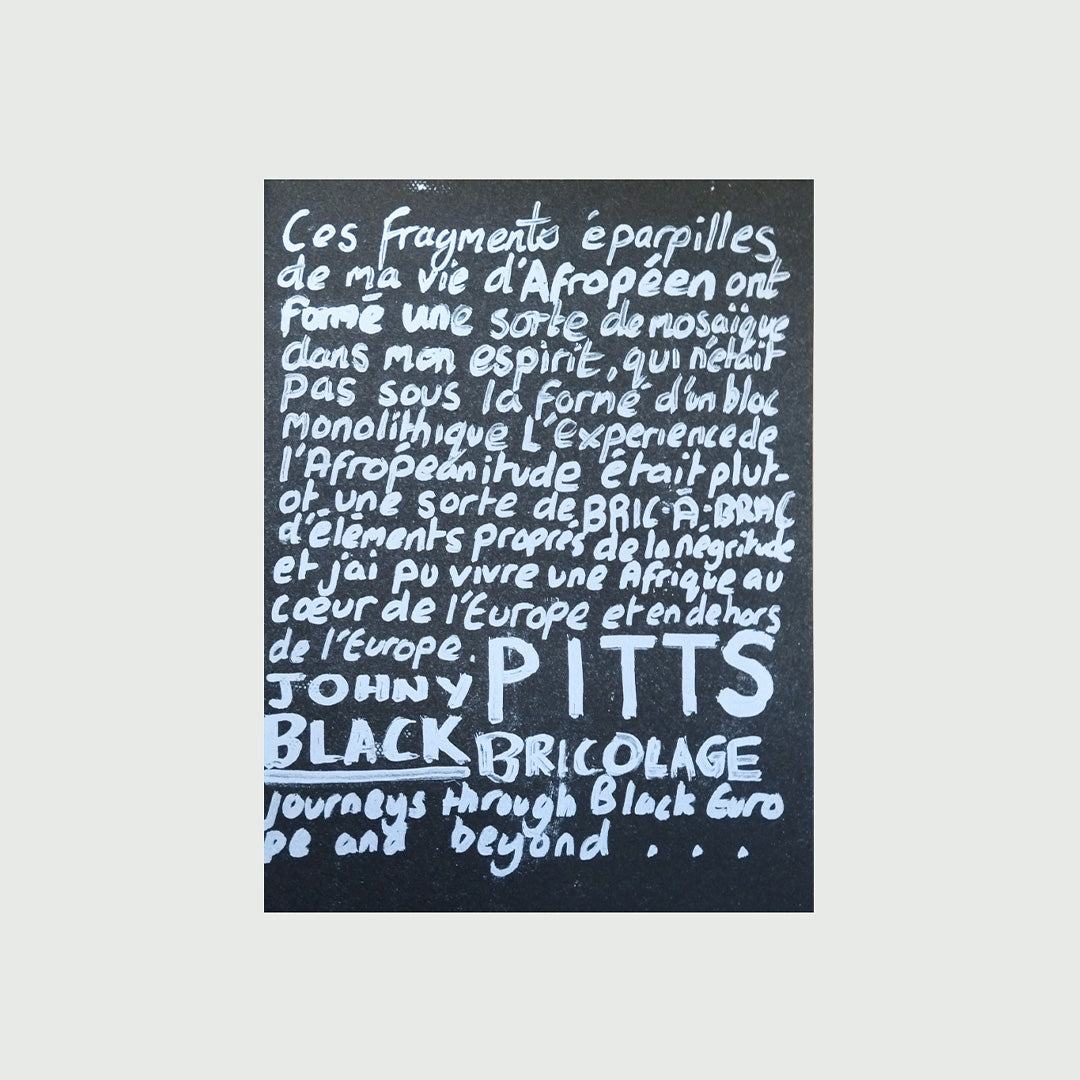 Ces fragments éparpilles
de ma vie d'Afropéen ont
formé une sorte de mosaïque
dans mon espirit, qui n'était
pas sous la formé d'un bloc
monolithique L'Experience de
l'Afropéanitude était plut-
ot une sorte de BRIC-À-BRAC
d'éléments proprés de la négritude
et j'ai pu vivre une Afrique au
cœur de l'Europe et en dehors
de l'Europe. PITTS
JOHNY
BLACK BRICOLAGE
journeys through Black Euro
pe and beyond . . .